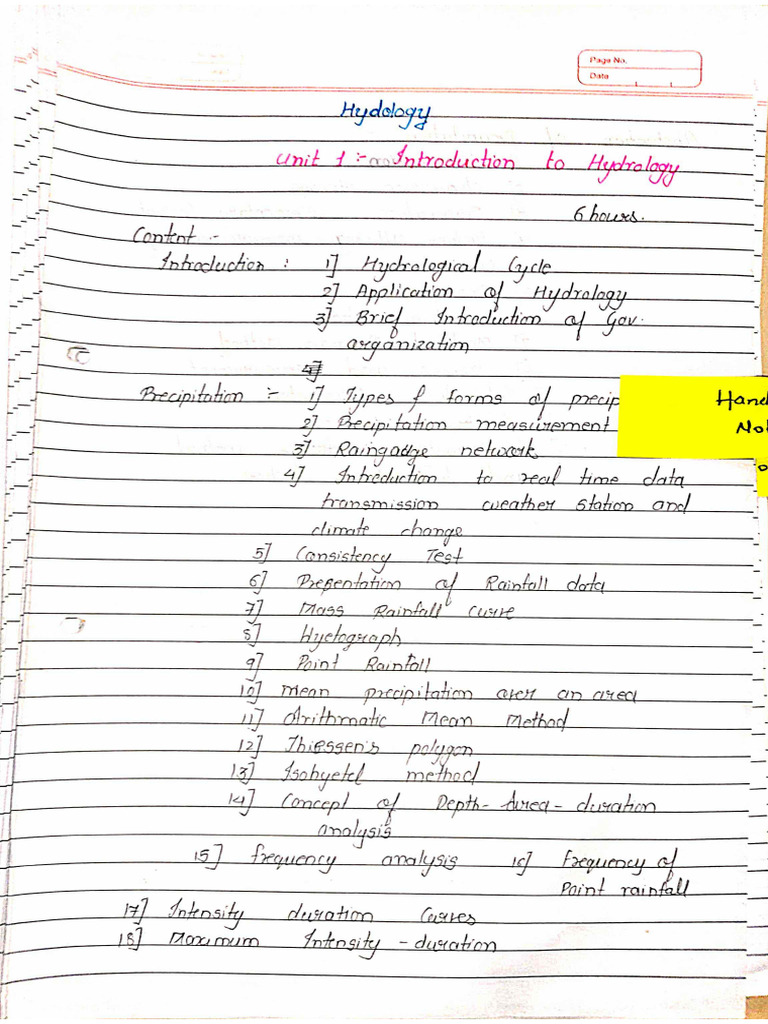 Page No.
Date
Hydology
Unit 1 :- Introduction to Hydrology
6 hours.
Content :-
Introduction : 1] Hydrological Cycle
2] Application of Hydrology
3] Brief Introduction of Gov.
organization
4]
Precipitation :- 1] Types & forms of precip
2] Precipitation measurement
3] Raingauge network
4] Introduction to real time data
transmission weather station and
climate change
5] Consistency Test
6] Presentation of Rainfall data
7] Mass Rainfall curve
8] Hyetograph
9] Point Rainfall
10] Mean precipitation over an area
11] Arithmatic Mean Method
12] Thiessen's polygon
13] Isohyetel method
14] Concept of Depth-Area-duration
analysis
15] Frequency analysis 16] Frequency of
Point rainfall
17] Intensity duration Curves
18] Maximum Intensity-duration
Hand
No